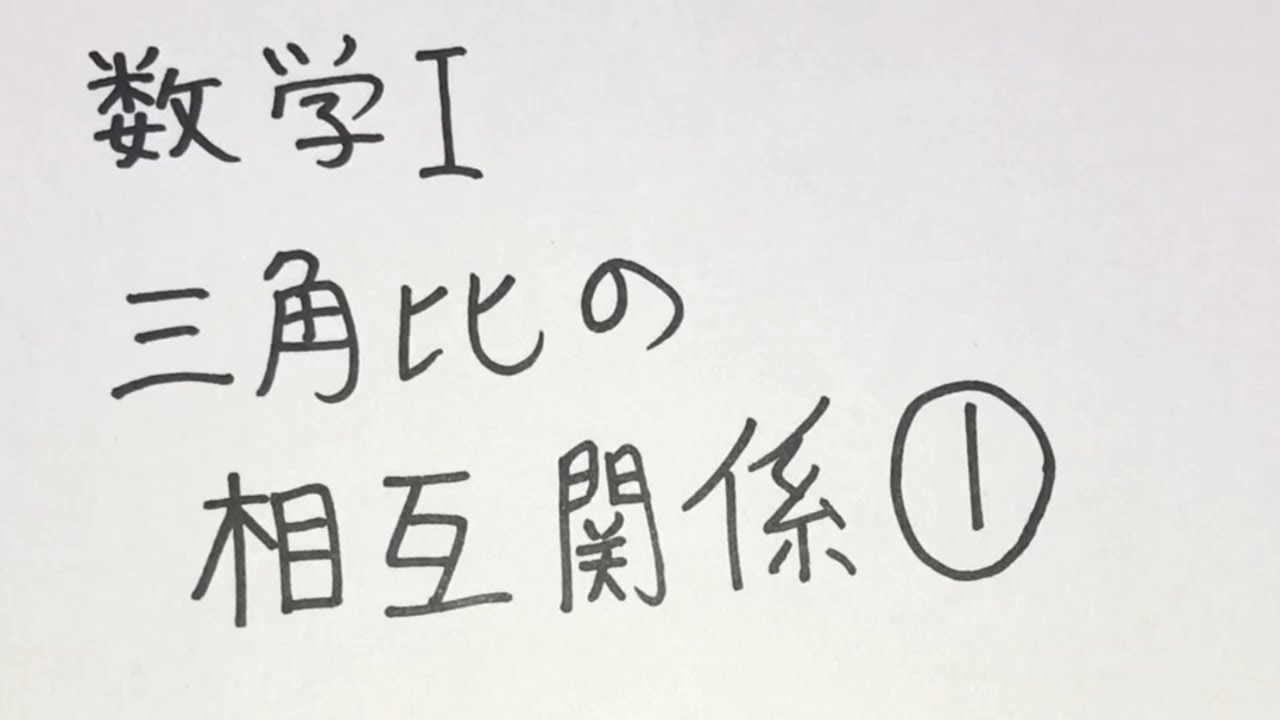 数学I
三角比の
相互関係①